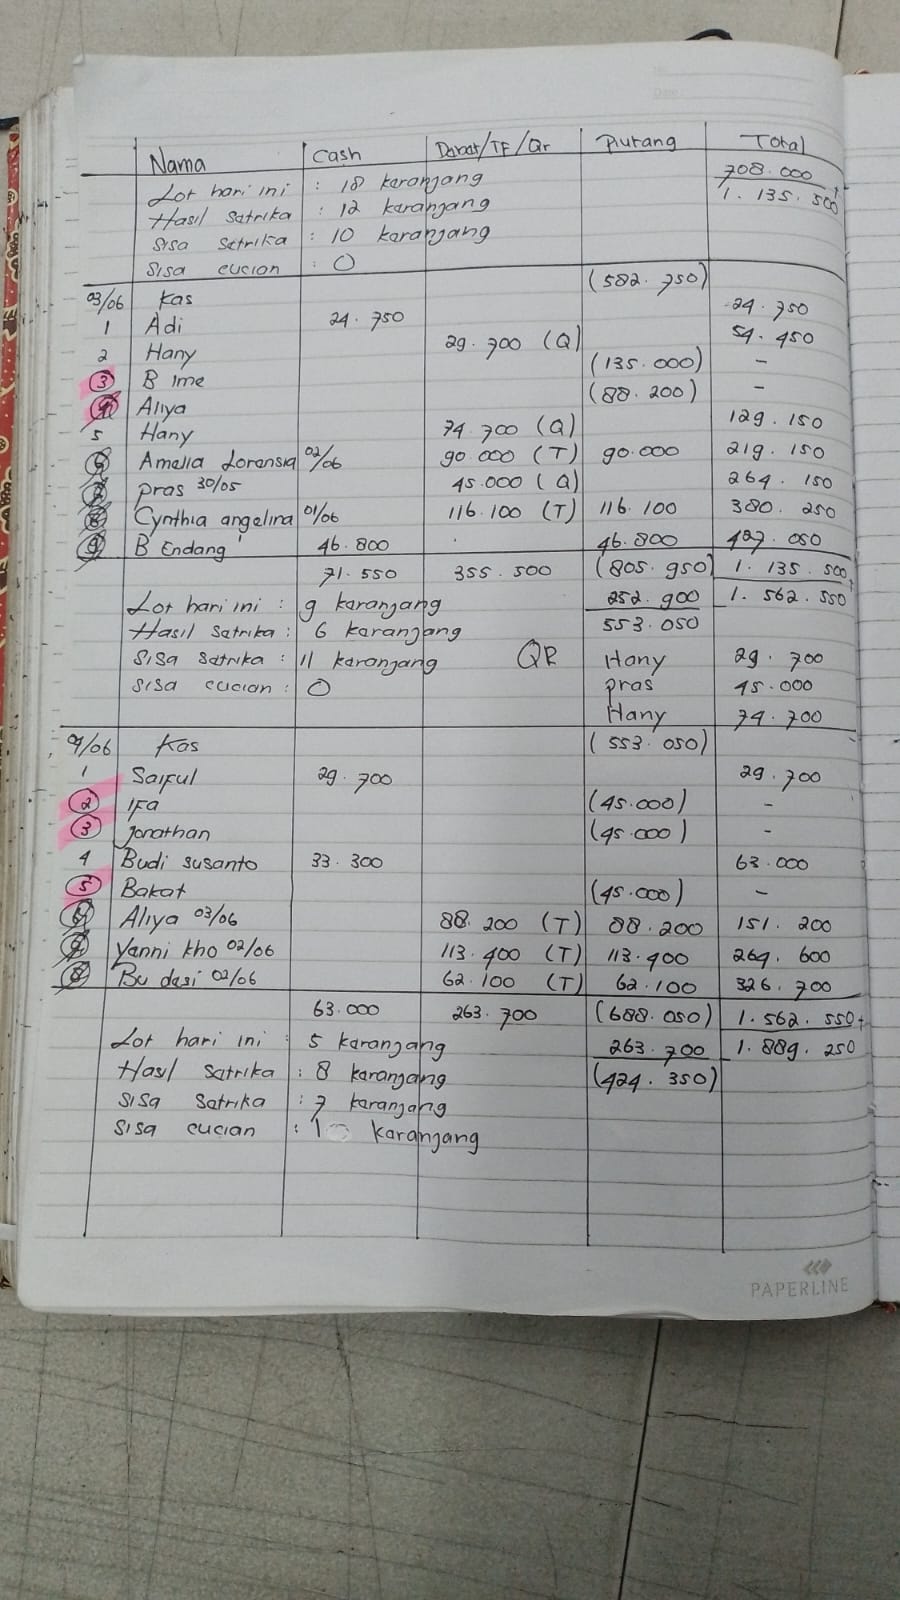 Nama Cash Debet/TF/Qr Piutang Total
708.000
Lot hari ini : 18 keranjang 1.135.500
Hasil Setrika : 12 keranjang
Sisa Setrika : 10 keranjang
Sisa cucian : 0
03/06 Kas (582.750)
1 Adi 24.750 24.750
2 Hany 29.700 (Q) 54.450
3 B Ime (135.000) -
4 Aliya (88.200) -
5 Hany 74.700 (Q) 129.150
6 Amelia Lorensia 02/06 90.000 (T) 90.000 219.150
7 Pras 30/05 45.000 (Q) 264.150
8 Cynthia angelina 01/06 116.100 (T) 116.100 380.250
9 B Endang 46.800 46.800 427.050
71.550 355.500 (805.950) 1.135.500+
Lot hari ini : 9 keranjang 252.900 1.562.550
Hasil Setrika : 6 keranjang 553.050
Sisa Setrika : 11 keranjang QR Hany 29.700
Sisa cucian : 0 Pras 45.000
Hany 74.700
4/06 Kas (553.050)
1 Saiful 29.700 29.700
2 Ifa (45.000) -
3 Jonathan (45.000) -
4 Budi Susanto 33.300 63.000
5 Bakat (45.000) -
6 Aliya 03/06 88.200 (T) 88.200 151.200
7 Yanni kho 02/06 113.400 (T) 113.400 264.600
8 Bu desi 02/06 62.100 (T) 62.100 326.700
63.000 263.700 (688.050) 1.562.550+
Lot hari ini : 5 keranjang 263.700 1.889.250
Hasil Setrika : 8 keranjang (424.350)
Sisa Setrika : 7 keranjang
Sisa cucian : 1 keranjang
PAPERLINE